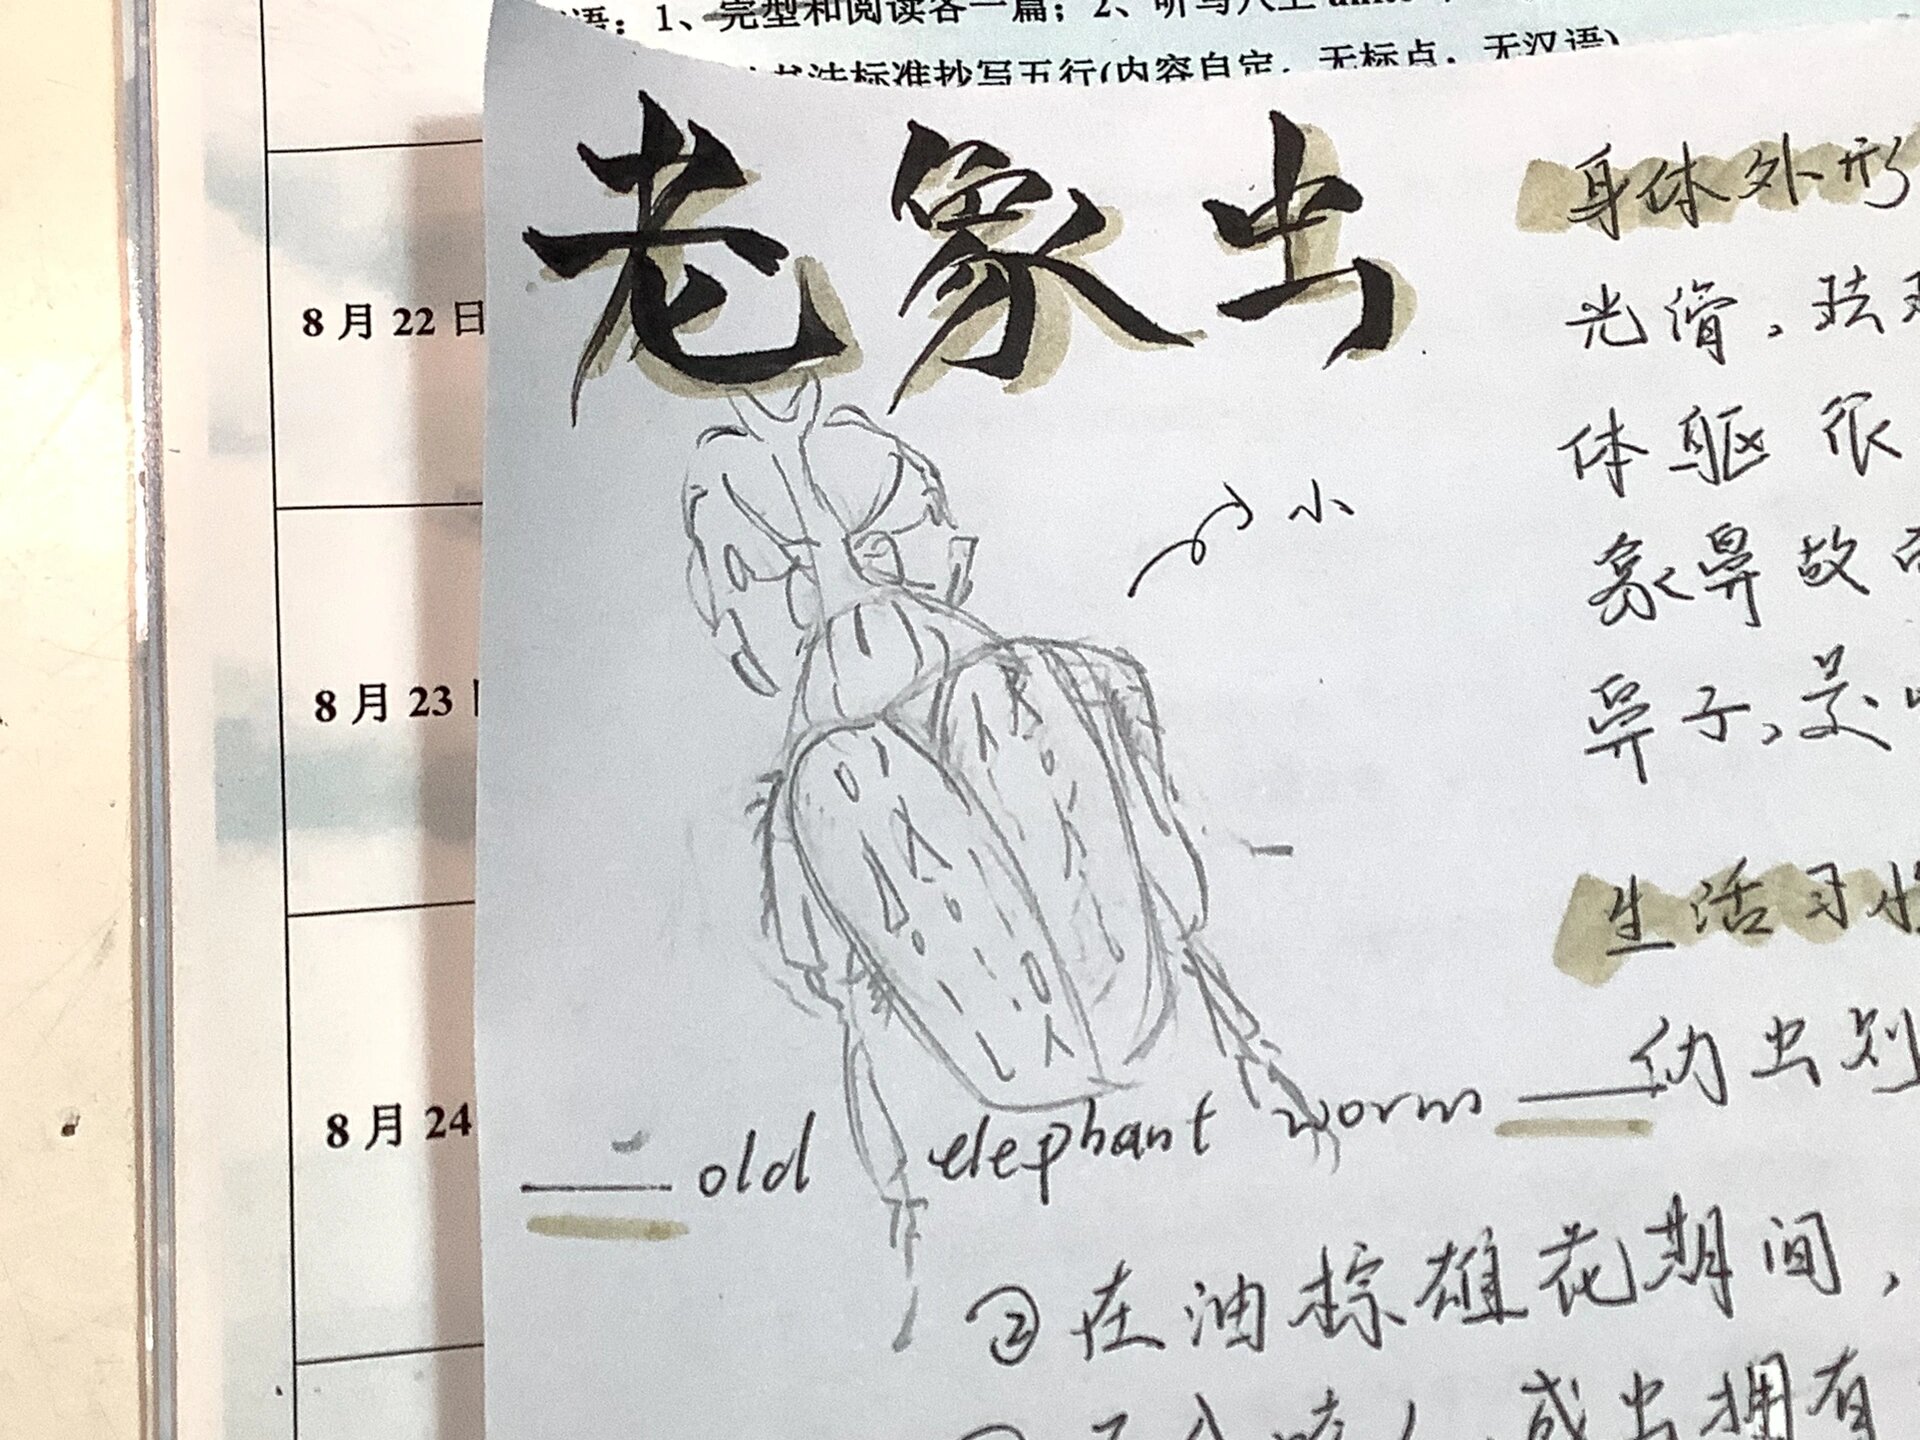 语：1、完型和阅读各一篇；2、听写八上
书法标准抄写五行(内容自定，无标点，无汉语)
8月22日
8月23日
8月24
老象虫
小
old elephant worm
身体外形
光滑，珐
体躯很
象鼻故
鼻子，并
生活习性
幼虫别
②在油棕雄花期间，
成虫拥有